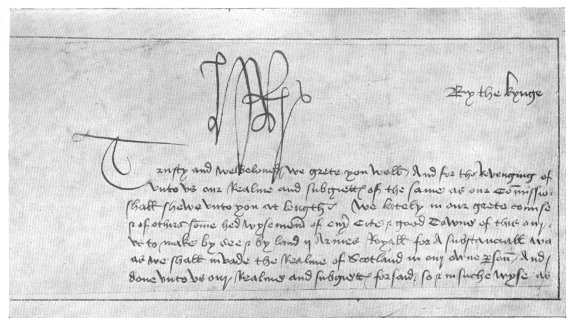 By the kynge
Trusty and welbeloued we grete you well And for the Revenging of
vnto vs our Realme and subgiettes of the same as our Comissio
shall shewe vnto you at length We lately in our grete counse
of others some hed wysemen of euery Citee & good Towne of this our
vs to make by see & by land ij Armies Royall for A substanciall wa
as we shall invade the Realme of Scotland in our owne person And
done vnto vs our Realme and subgiettes forsaid so in suche wyse as